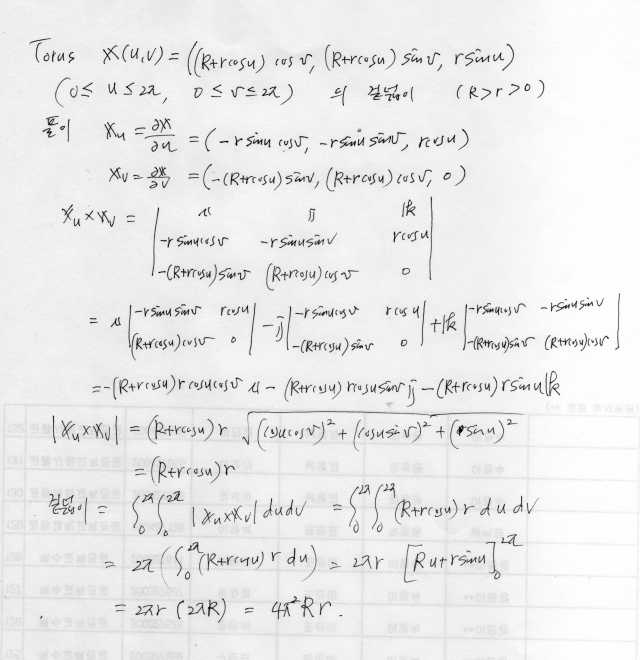 Torus 𝕏(u,v) = ((R+rcosu) cos v, (R+rcosu) sin v, rsinu)
(0≤ u ≤ 2π, 0 ≤ v ≤ 2π) 의 겉넓이 (R>r>0)
풀이 𝕏u = ∂𝕏/∂u = (-r sinu cosv, -r sinu sinv, rcosu)
𝕏v = ∂𝕏/∂v = (-(R+rcosu) sinv, (R+rcosu) cosv, 0)
𝕏u × 𝕏v = | 𝕚 𝕛 𝕜 |
| -r sinucosv -r sinusinv rcosu |
| -(R+rcosu) sinv (R+rcosu) cosv 0 |
= 𝕚 | -r sinu sinv rcosu | - 𝕛 | -r sinucosv rcosu | + 𝕜 | -r sinucosv -r sinusinv |
| (R+rcosu)cosv 0 | | -(R+rcosu) sinv 0 | | -(R+rcosu)sinv (R+rcosu)cosv |
= -(R+rcosu) r cosucosv 𝕚 - (R+rcosu) rcosusinv 𝕛 - (R+rcosu) r sinu 𝕜
|𝕏u×𝕏v| = (R+rcosu) r √((cosucosv)² + (cosusinv)² + (sinu)²)
= (R+rcosu) r
겉넓이 = ∫₀^2π ∫₀^2π |𝕏u×𝕏v| dudv = ∫₀^2π ∫₀^2π (R+rcosu) r du dv
= 2π (∫₀^2π (R+rcosu) r du) = 2πr [Ru+rsinu]₀^2π
= 2πr (2πR) = 4π²Rr.